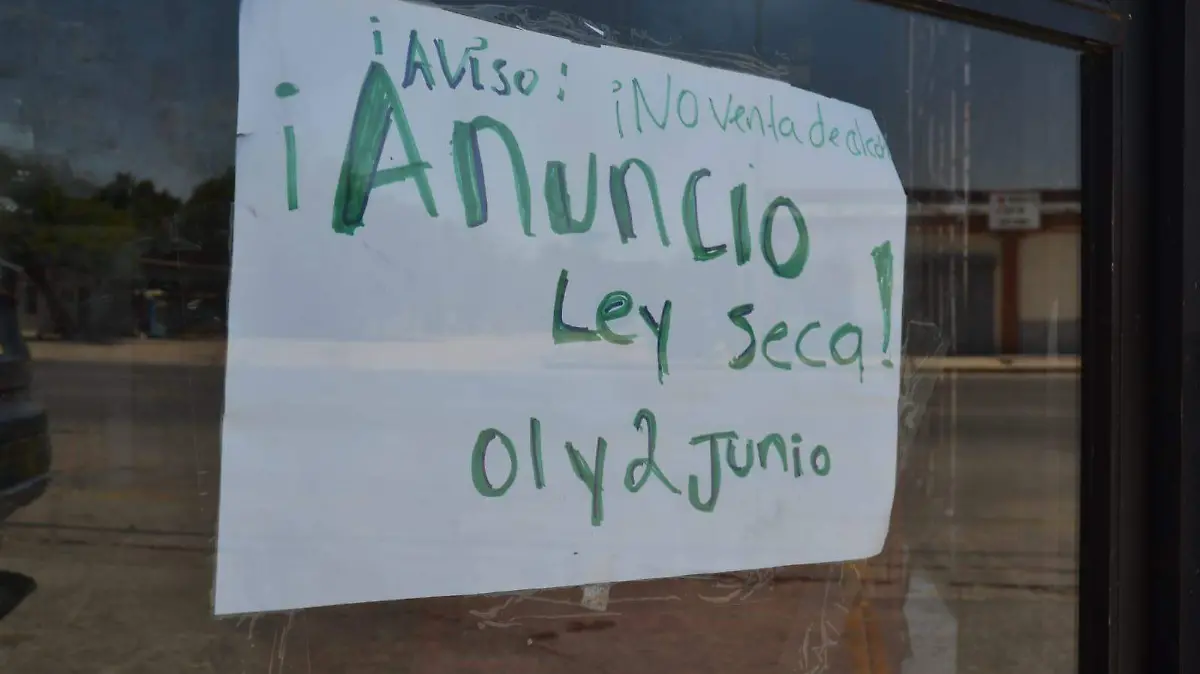 ¡Aviso: ¡No venta de alcoh
¡Anuncio
Ley seca!
01 y 2 Junio